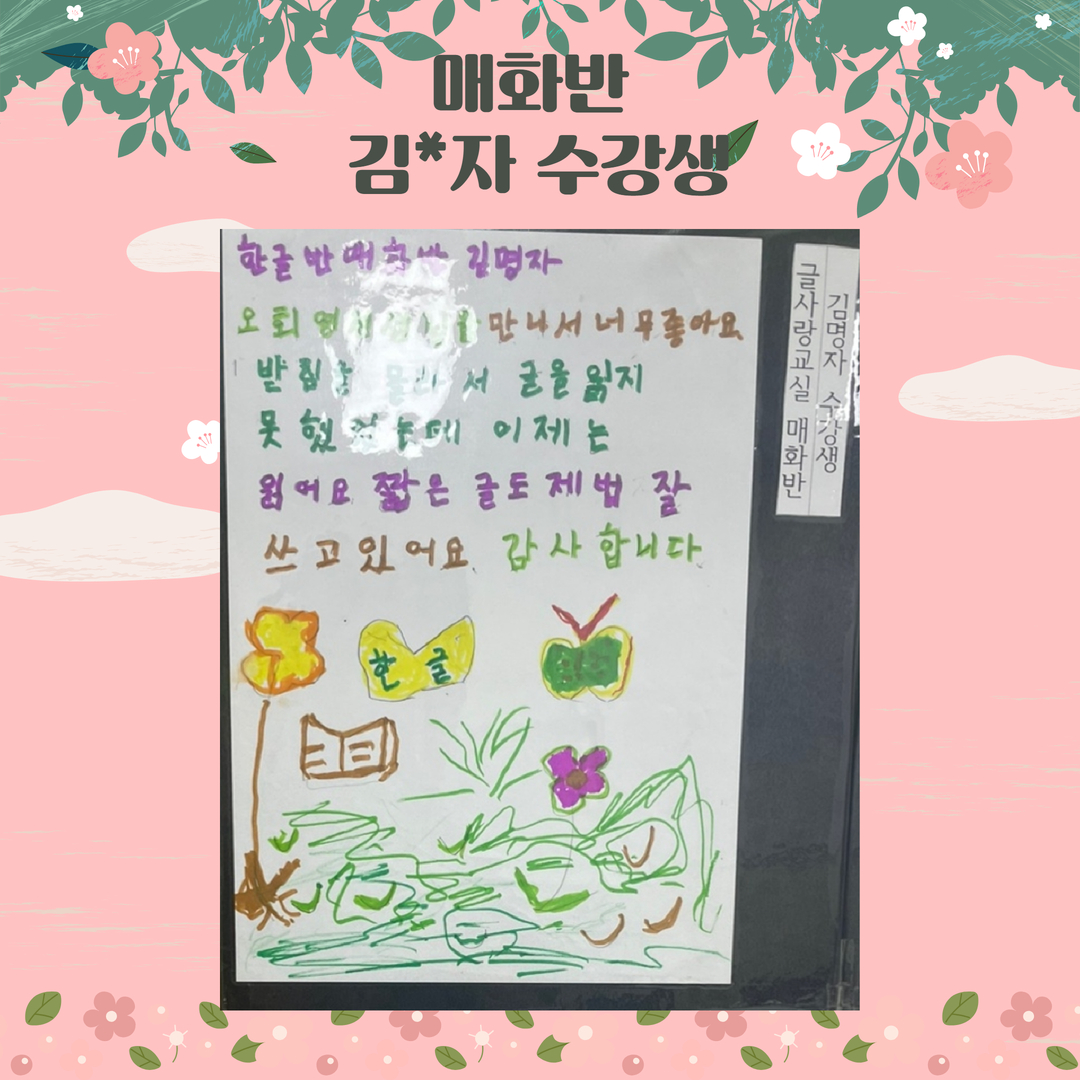 매화반
김*자 수강생
한글반 매화반 김명자
오회 선생님을 만나서 너무좋아요
받침을 몰라서 글을 읽지
못했었는데 이제는
읽어요 짧은 글도 제법 잘
쓰고있어요 감사합니다
한글
글사랑교실 매화반
김명자 수강생